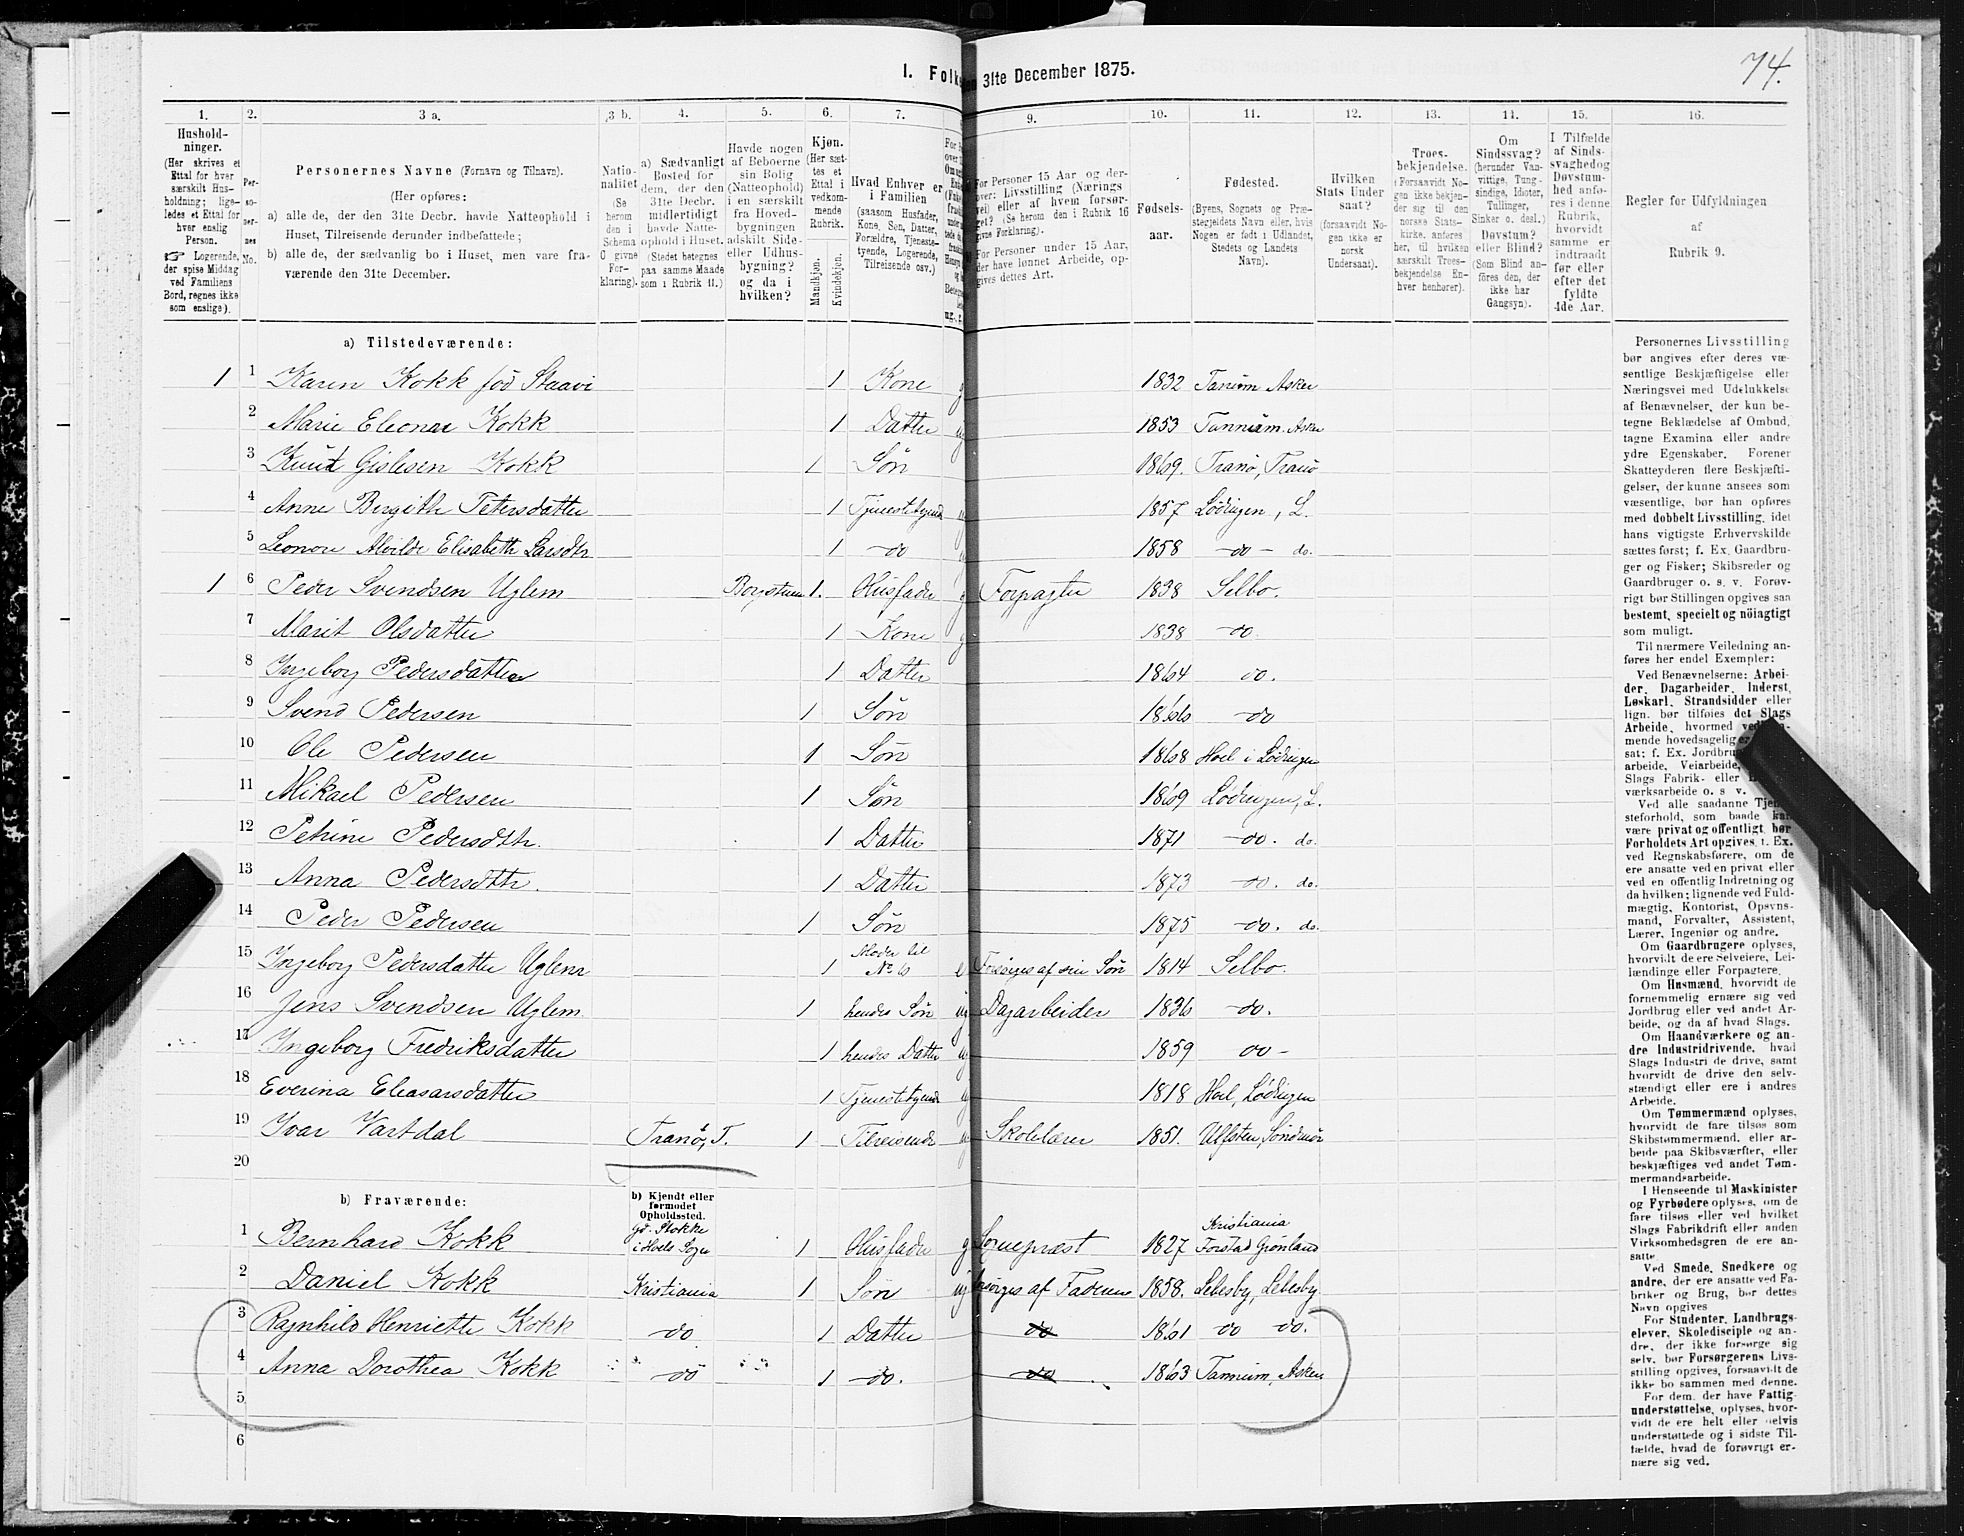 74.
I. Folk
en 31te December 1875.
1. 2. 3 a. 3 b. 4. 5. 6. 7. 9. 10. 11. 12. 13. 14. 15. 16.
Hushold-
ninger.
(Her skrives et
Ettal for hver
særskilt Hus-
holdning; lige-
ledes et Ettal for
hver enslig
Person.
☞ Logerende,
der spise Middag
ved Familiens
Bord, regnes ikke
som enslige).
Per-
so-
ner-
nes
No.
Personernes Navne (Fornavn og Tilnavn).
(Her opføres:
a) alle de, der den 31te Decbr. havde Natteophold i
Huset, Tilreisende derunder indbefattede;
b) alle de, der sædvanlig bo i Huset, men vare fra-
værende den 31te December.
Natio-
nalitet
(Se
herom
den i
Schema
O givne
For-
klaring).
a) Sædvanligt
Bosted for
dem, der den
31te Decbr.
midlertidigt
havde Natte-
ophold i Huset.
(Stedet betegnes
paa samme Maade
som i Rubrik 11.)
Havde nogen
af Beboerne
sin Bolig
(Natteophold)
i en særskilt
fra Hoved-
bygningen
adskilt Side-
eller Udhus-
bygning?
og da i
hvilken?
Kjøn.
(Her sæt-
tes et
Ettal i
vedkom-
mende
Rubrik.
Mandkjøn.
Kvindekjøn.
Hvad Enhver er
i Familien
(saasom Husfader,
Kone, Søn, Datter,
Forældre, Tjeneste-
tyende, Logerende,
Tilreisende osv.)
For Personer 15 Aar og der-
over: Livsstilling (Nærings
vei) eller af hvem forsør-
get? (Se herom den i Rubrik 16
givne Forklaring).
For Personer under 15 Aar,
der have lønnet Arbeide, op-
gives dettes Art.
Fødsels-
aar.
Fødested.
(Byens, Sognets og Præ-
stegjeldets Navn eller, hvis
Nogen er født i Udlandet,
Stedets og Landets
Navn).
Hvilken
Stats Under
saat?
(forsaavidt No-
gen ikke er
norsk
Undersaat).
Troes-
bekjendelse.
(Forsaavidt No-
gen ikke bekjen-
der sig til den
norske Stats-
kirke, anføres
her, til hvilken
særskilt Troes-
bekjendelse En-
hver henhører).
Om
Sindssvag?
(herunder Van-
vittige, Tung-
sindige, Idioter,
Tullinger,
Sinker o. desl.)
Døvstum?
eller Blind?
(Som Blind an-
føres den, der
ikke har
Gangsyn).
I Tilfælde
af Sinds-
svaghedog
Døvstum-
hed anfø-
res i denne
Rubrik,
hvorvidt
samme er
indtraadt
før eller
efter det
fyldte
4de Aar.
Regler for Udfyldningen
af
Rubrik 9.
a) Tilstedeværende:
1 1 Karen Kokk fød Staavi 1 Kone g 1832 Tanum Asker
2 Marie Eleonar Kokk 1 Datter ug 1853 Tannum. Asker
3 Knut Gislesen Kokk 1 Søn 1869. Tranø, Tranø
4 Anne Bergithe Petersdatter 1 Tjenestetyende ug 1857 Lødingen, L.
5 Leonore Alvilde Elisabeth Larsdtr 1 do 1858 do do.
1 6 Peder Svendsen Uglem Borgstuen 1. Husfader g Forpagter 1838 Selbo.
7 Marit Olsdatter 1 Kone g 1838 do.
8 Ingeborg Pedersdatter 1 Datter 1864 do.
9 Svend Pedersen 1 Søn 1866 do
10 Ole Pedersen 1 Søn 1868 Hoel i Lødingen
11 Mikael Pedersen 1 Søn 1869 Lødingen, L.
12 Petrine Pedersdtr. 1 Datter 1871 do. do.
13 Anna Pedersdtr. 1 Datter 1873 do. do.
14 Peder Pedersen 1 Søn 1875 do. do.
15 Ingeborg Pedersdatter Uglem 1 Moder til No 6 e Forsørges af sin Søn 1814 Selbo.
16 Jens Svendsen Uglem 1 hendes Søn ug Dagarbeider 1836 do.
17 Ingeborg Fredriksdatter 1 hendes Datter ug 1859 do
18 Everina Eleasarsdatter 1 Tjenestetyende ug 1818 Hoel, Lødingen
19 Ivar Vartdal Tranø, T. 1 Tilreisende ug Skolelærer 1851. Ulfsten, Søndmør
20
b) Fraværende:
b) Kjendt eller
formodet
Opholdssted.
1 Bernhard Kokk Gd. Stokke i Hoels Sogn 1 Husfader g Sognepræst 1827 Kristiania Forstad Grønland
2 Daniel Kokk Kristiania 1 Søn ug orsørges af Faderen 1858. Lebesby, Lebesby
3 Ragnhild Henriette Kokk do 1 Datter do 1861 do do.
4 Anna Dorothea Kokk do 1 do. do 1863 Tannum, Asker
5
6
Personernes Livsstilling
bør angives efter deres væ-
sentlige Beskjæftigelse eller
Næringsvei med Udelukkelse
af Benævnelser, der kun be-
tegne Beklædelse af Ombud,
tagne Examina eller andre
ydre Egenskaber. Forener
Skatteyderen flere Beskjæfti-
gelser, der kunne ansees som
væsentlige, bør han opføres
med dobbelt Livsstilling, idet
hans vigtigste Erhvervskilde
sættes først; f. Ex. Gaardbru-
ger og Fisker; Skibsreder og
Gaardbruger o. s. v. Forøv-
rigt bør Stillingen opgives saa
bestemt, specielt og nöiagtigt
som muligt.
Til nærmere Veiledning an-
føres her endel Exempler:
Ved Benævnelserne: Arbei-
der, Dagarbeider, Inderst,
Løskarl, Strandsidder eller
lign. bør tilføies det Slags
Arbeide, hvormed ved
mende hovedsagelig er
sat; f. Ex. Jordbru
arbeide, Veiarbeide,
Slags Fabrik- eller
værksarbeide o. s. v.
Ved alle saadanne Tjen
steforhold, som baade kan
være privat og offentligt, bør
Forholdets Art opgives, t. Ex.
ved Regnskabsførere, om de
ere ansatte ved en privat eller
ved en offentlig Indretning og
da hvilken; lignende ved Fuld-
mægtig, Kontorist, Opsyns-
mand, Forvalter, Assistent,
Lærer, Ingeniør og andre.
Om Gaardbrugere oplyses,
hvorvidt de ere Selveiere, Lei-
lændinge eller Forpagtere.
Om Husmænd, hvorvidt de
fornemmelig ernære sig ved
Jordbrug eller ved andet Ar-
beide, og da af hvad Slags.
Om Haandværkere og an-
dre Industridrivende, hvad
Slags Industri de drive, samt
hvorvidt de drive den selv-
stændigt eller ere i andres
Arbeide.
Om Tømmermænd oplyses,
hvorvidt de fare tilsøs som
Skibstømmermænd, eller ar-
beide paa Skibsværfter, eller
beskjæftiges ved andet Tøm-
mermandsarbeide.
I Henseende til Maskinister
og Fyrbødere oplyses, om de
fare tilsøs eller ved hvilket
Slags Fabrikdrift eller anden
Virksomhedsgren de ere an-
satte
Ved Smede, Snedkere og
andre, der ere ansatte ved Fa-
briker og Brug, bør dettes
Navn opgives
For Studenter, Landbrugs-
elever, Skoledisciple og an-
dre, der ikke forsørge sig
selv, bør Forsørgerens Livs-
stilling opgives, forsaavidt de
ikke bo sammen med denne.
For dem, der have Fattig-
understøttelse, oplyses, hvor-
vidt de ere helt eller delvis
understøttede og i sidste Til-
fælde, hvad de forøvrigt er-
nære sig ved.